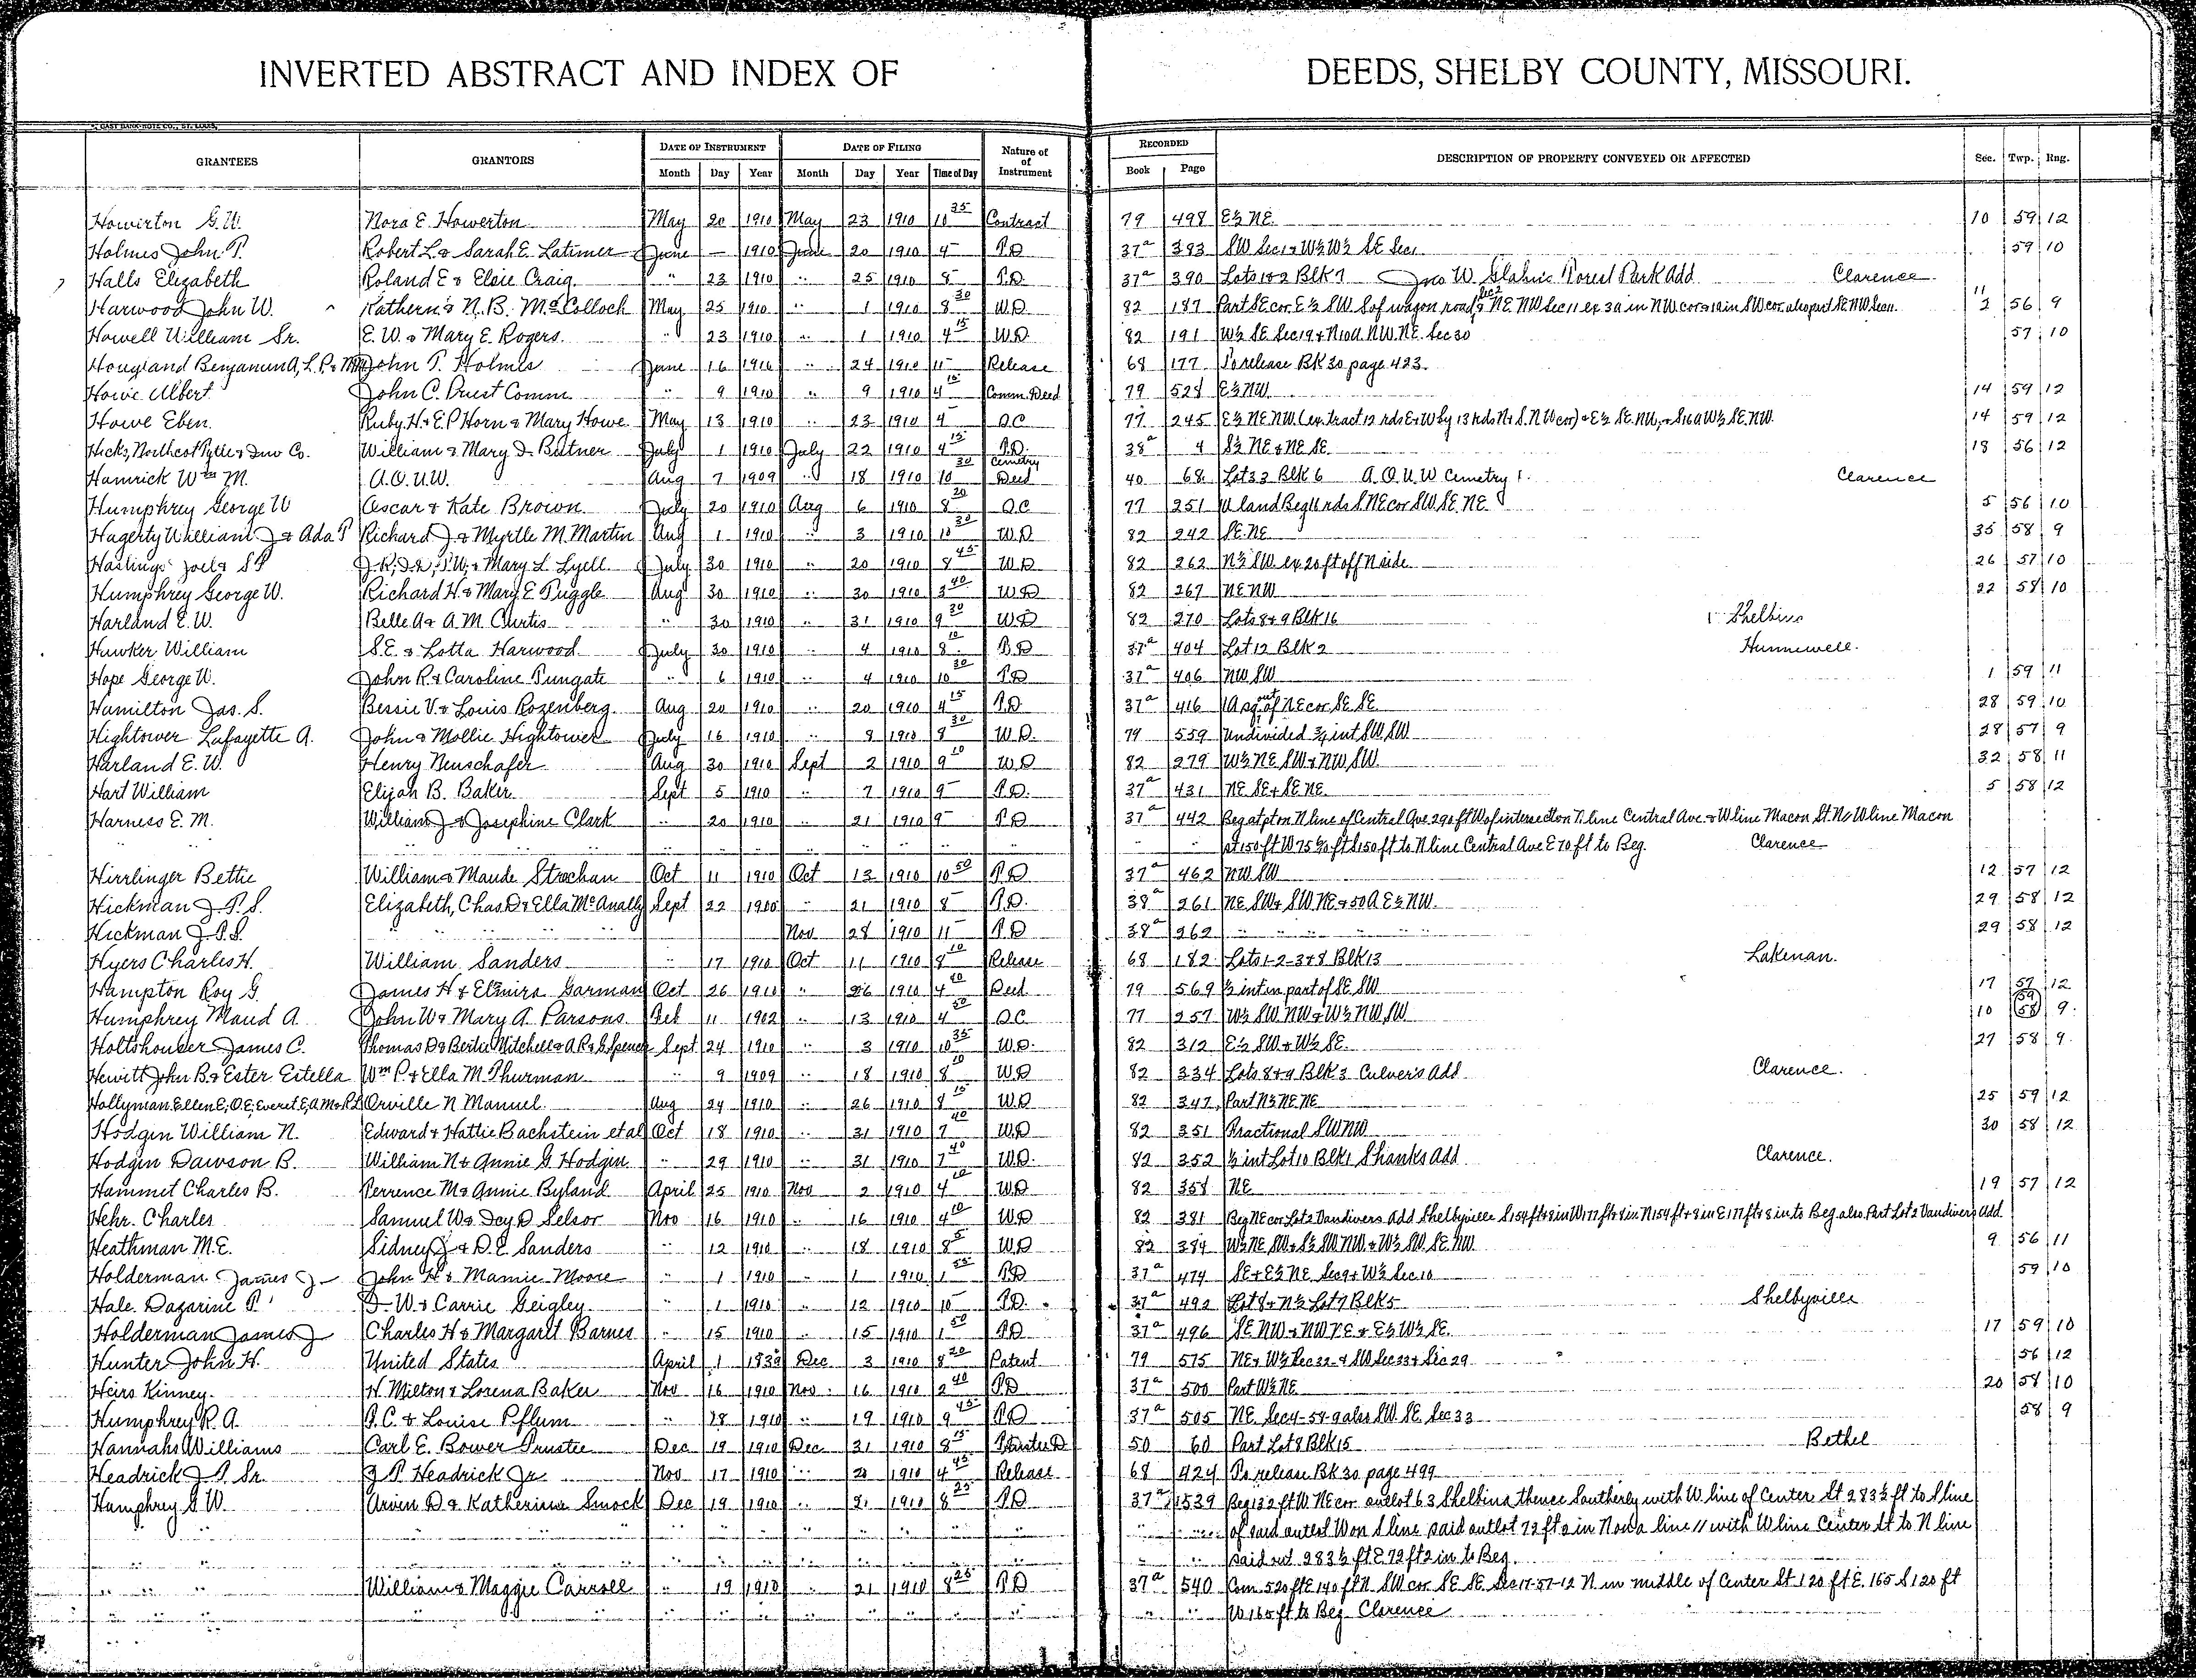 INVERTED ABSTRACT AND INDEX OF DEEDS, SHELBY COUNTY, MISSOURI.
GRANTEES GRANTORS DATE OF INSTRUMENT DATE OF FILING Nature of of Instrument RECORDED DESCRIPTION OF PROPERTY CONVEYED OR AFFECTED Sec. Twp. Rng.
Month Day Year Month Day Year Time of Day Book Page
Howerton G.W. Nora E. Howerton May 20 1910 May 23 1910 10 35 Contract 79 498 E½ NE 10 59 12
Holmes John T. Robert L & Sarah E. Latimer June — 1910 June 20 1910 4 — T.D 37a 383 SW Sec 1 & W½ W½ SE Sec 1 59 10
Halls Elizabeth Roland E & Elsie Craig " 23 1910 " 25 1910 8 — T.D. 37a 390 Lots 1&2 Blk 7 Jno W. Glahns Forest Park Add Clarence
Harwood John W. Kathern & N.B. McColloch May 25 1910 " 1 1910 8 30 W.D 82 187 Part SE cor E½ SW S of wagon road Sec 2 & NE NW Sec 11 ex 3a in NW cor & 10a in SW cor also part SE NW Sec 11. 11 2 56 9
Howell William Sr. E.W. & Mary E Rogers. " 23 1910 " 1 1910 4 15 W.D 82 191 W½ SE Sec 19 & N 10a NW. NE. Sec 30 57 10
Hougland Benjamin A, L.P. & John T. Holmes June 16 1910 " 24 1910 11 — Release 68 177 To release BK 30 page 423.
Howe Albert John C. Prust Comm. " 9 1910 " 9 1910 4 15 Comm. Deed 79 528 E½ NW 14 59 12
Howe Eben. Ruby H. & E.P Horn & Mary Howe May 13 1910 " 23 1910 4 — Q.C 77 245 E½ NE NW (ex. tract 12 rds E & W by 13 rds N & S. NW cor) & E½ SE. NW, & S16a W½ SE. NW. 14 59 12
Hicks, Northcot & Inv Co. William & Mary J. Bitner July 1 1910 July 22 1910 4 15 T.D. 38a 4 S½ NE & NE SE 18 56 12
Hamrick Wm M. A.O.U.W. Aug 7 1909 " 18 1910 10 30 Cemetry Deed 40 68 Lot 33 Blk 6 A.O.U.W Cemetry Clarence
Humphrey George W Oscar & Kate Brown July 20 1910 Aug 6 1910 8 20 Q.C 77 251 land Beg rds S. NE cor SW SE NE 5 56 10
Hagerty William J & Ada T Richard J. & Myrtle M. Martin Aug 1 1910 " 3 1910 10 30 W.D 82 242 SE. NE 35 58 9
Hastings Joel & S.P. J.R, J.A, T.W, & Mary L. Lyell July 30 1910 " 20 1910 8 45 W.D 82 262 N½ SW ex 20 ft off N side 26 57 10
Humphrey George W. Richard H. & Mary E Tuggle Aug 30 1910 " 30 1910 3 40 W.D 82 267 NE NW 22 58 10
Harland E.W. Belle A & A.M. Curtis " 30 1910 " 31 1910 9 30 W.D 82 270 Lots 8&9 Blk 16 Shelbina
Hawker William S.E. & Lotta Harwood July 30 1910 " 4 1910 8 10 T.D 37a 404 Lot 12 Blk 2 Hunnewell.
Hope George W. John R. & Caroline Tungate " 6 1910 " 4 1910 10 30 T.D 37a 406 NW SW 1 59 11
Hamilton Jas. S. Bessie V. & Louis Rozenberg. Aug 20 1910 " 20 1910 4 15 T.D 37a 416 1A sq out of NE cor SE SE 28 59 10
Hightower Lafayette A. John & Mollie Hightower July 16 1910 " 8 1910 9 30 W.D. 79 559 Undivided ¾ int SW SW 28 57 9
Harland E.W. Henry Neuschafer Aug 30 1910 Sept 2 1910 9 10 W.D 82 279 W½ NE SW & NW SW 32 58 11
Hart William Elijah B. Baker Sept 5 1910 " 7 1910 9 — T.D. 37a 431 NE SE & SE NE 5 58 12
Harness E.M. William J & Josephine Clark " 20 1910 " 21 1910 9 — T.D 37a 442 Beg at pt on N line of Central Ave 290 ft W of intersection N line Central Ave & W line Macon St. N & W line Macon
" " " " " " " " St 150 ft W 75 ft S 150 ft to N line Central Ave E 70 ft to Beg. Clarence
Hirrlinger Bettie William & Maude Strachan Oct 11 1910 Oct 13 1910 10 50 T.D 37a 462 NW SW 12 57 12
Hickman J.P.S. Elizabeth, Chas D & Ella McAnally Sept 22 1910 " 21 1910 8 — T.D. 38a 261 NE SW & SW NE & 50A E½ NW. 29 58 12
Hickman J.P.S. " " " Nov 28 1910 11 — T.D 38a 262 " " " " 29 58 12
Hyers Charles H. William Sanders " 17 1910 Oct 11 1910 8 10 Release 68 182 Lots 1-2-3&8 Blk 13 Lakenan.
Hampton Roy G. James H & Elmira Garman Oct 26 1910 " 26 1910 4 Deed 79 569 ½ int in part of SE SW 17 57 12
Humphrey Maud A John W & Mary A. Parsons Oct 11 1902 " 13 1910 4 50 Q.C 77 257 W½ SW NW & W½ NW SW 10 59 58 9.
Holtshouser James C. Thomas D & Bertie Mitchell & A.R. & G. Spencer Sept 24 1910 " 3 1910 10 35 W.D. 82 312 E½ SW & W½ SE. 27 58 9.
Hewitt John B & Ester Estella Wm P. & Ella M Thurman " 9 1909 " 18 1910 8 20 W.D 82 334 Lots 8&9 Blk 3 Culver's Add Clarence.
Hollyman Ellen E, O.E, Everet E, A.M & R.L Orville N Manuel Aug 24 1910 " 26 1910 8 15 W.D 82 347 Part N½ NE NE 25 59 12
Hodgin William N. Edward & Hattie Bachstein et al Oct 18 1910 " 31 1910 7 40 W.D 82 351 Fractional SW NW 30 58 12
Hodgin Dawson B. William N & Annie G Hodgin " 29 1910 " 31 1910 7 40 W.D. 82 352 ½ int Lot 10 Blk 1 Shanks Add Clarence.
Hammet Charles B. Terrence M & Annie Byland April 25 1910 Nov 2 1910 4 W.D 82 358 NE 19 57 12
Hehr. Charles Samuel W & Icy D Selsor Nov 16 1910 " 16 1910 4 10 W.D 82 381 Beg NE cor Lot 2 Vandivers Add Shelbyville S 154 ft 8 in W 177 ft 8 in N 154 ft & 8 in E 177 ft & 8 in to Beg also Part Lot 2 Vandivers Add
Heathman M.E. Sidney J & D.E. Sanders " 12 1910 " 18 1910 8 5 W.D 82 384 W½ NE SW & S½ SW NW & W½ SW SE NW. 9 56 11
Holderman James J John H & Mamie Moore " 1 1910 " 1 1910 1 55 T.D 37a 474 SE & E½ NE Sec 9 & W½ Sec 10 59 10
Hale Dazarine P. D.W. & Carrie Geigley " 1 1910 " 12 1910 10 — T.D. 37a 492 Lot 8 & N½ Lot 7 Blk 5 Shelbyville
Holderman James J Charles H & Margaret Barnes " 15 1910 " 15 1910 1 50 T.D 37a 496 SE NW & NW NE & E½ W½ SE. 17 59 10
Hunter John H. United States April 1 183 Dec 3 1910 8 20 Patent 79 575 NE & W½ Sec 32 & SW Sec 33 & Sec 29 56 12
Heirs Kinney. H Milton & Lorena Baker Nov 16 1910 Nov. 16 1910 2 40 T.D 37a 500 Part W½ NE 20 58 10
Humphrey R.A. P.C. & Louise Pflum " 18 1910 " 19 1910 9 45 T.D 37a 505 NE Sec 4-58-9 also SW SE Sec 33 58 9
Hannahs Williams Carl E. Bower Trustee Dec 19 1910 Dec 31 1910 8 15 Trustee D 50 60 Part Lot 8 Blk 15 Bethel
Headrick J.P. Sr. J.P. Headrick Jr Nov 17 1910 " 1910 4 45 Release 68 424 To release BK 30 page 499
Humphrey G.W. Arven D & Katherine Smock Dec 19 1910 " 21 1910 8 25 T.D 37a 539 Beg 132 ft W NE cor outlot 63 Shelbina thence Southerly with W line of Center St 283½ ft to S line
" " " " " of said outlot W on S line said outlot 72 ft 2 in N on a line // with W line Center St to N line
" " " " " said out 283½ ft E 72 ft 2 in to Beg.
" " William & Maggie Carroll " 19 1910 " 21 1910 8 25 T.D 37a 540 Com 520 ft E 140 ft N SW cor SE SE Sec 17-57-12 N in middle of Center St 120 ft E. 165 S 120 ft
" " " " " W 165 ft to Beg Clarence